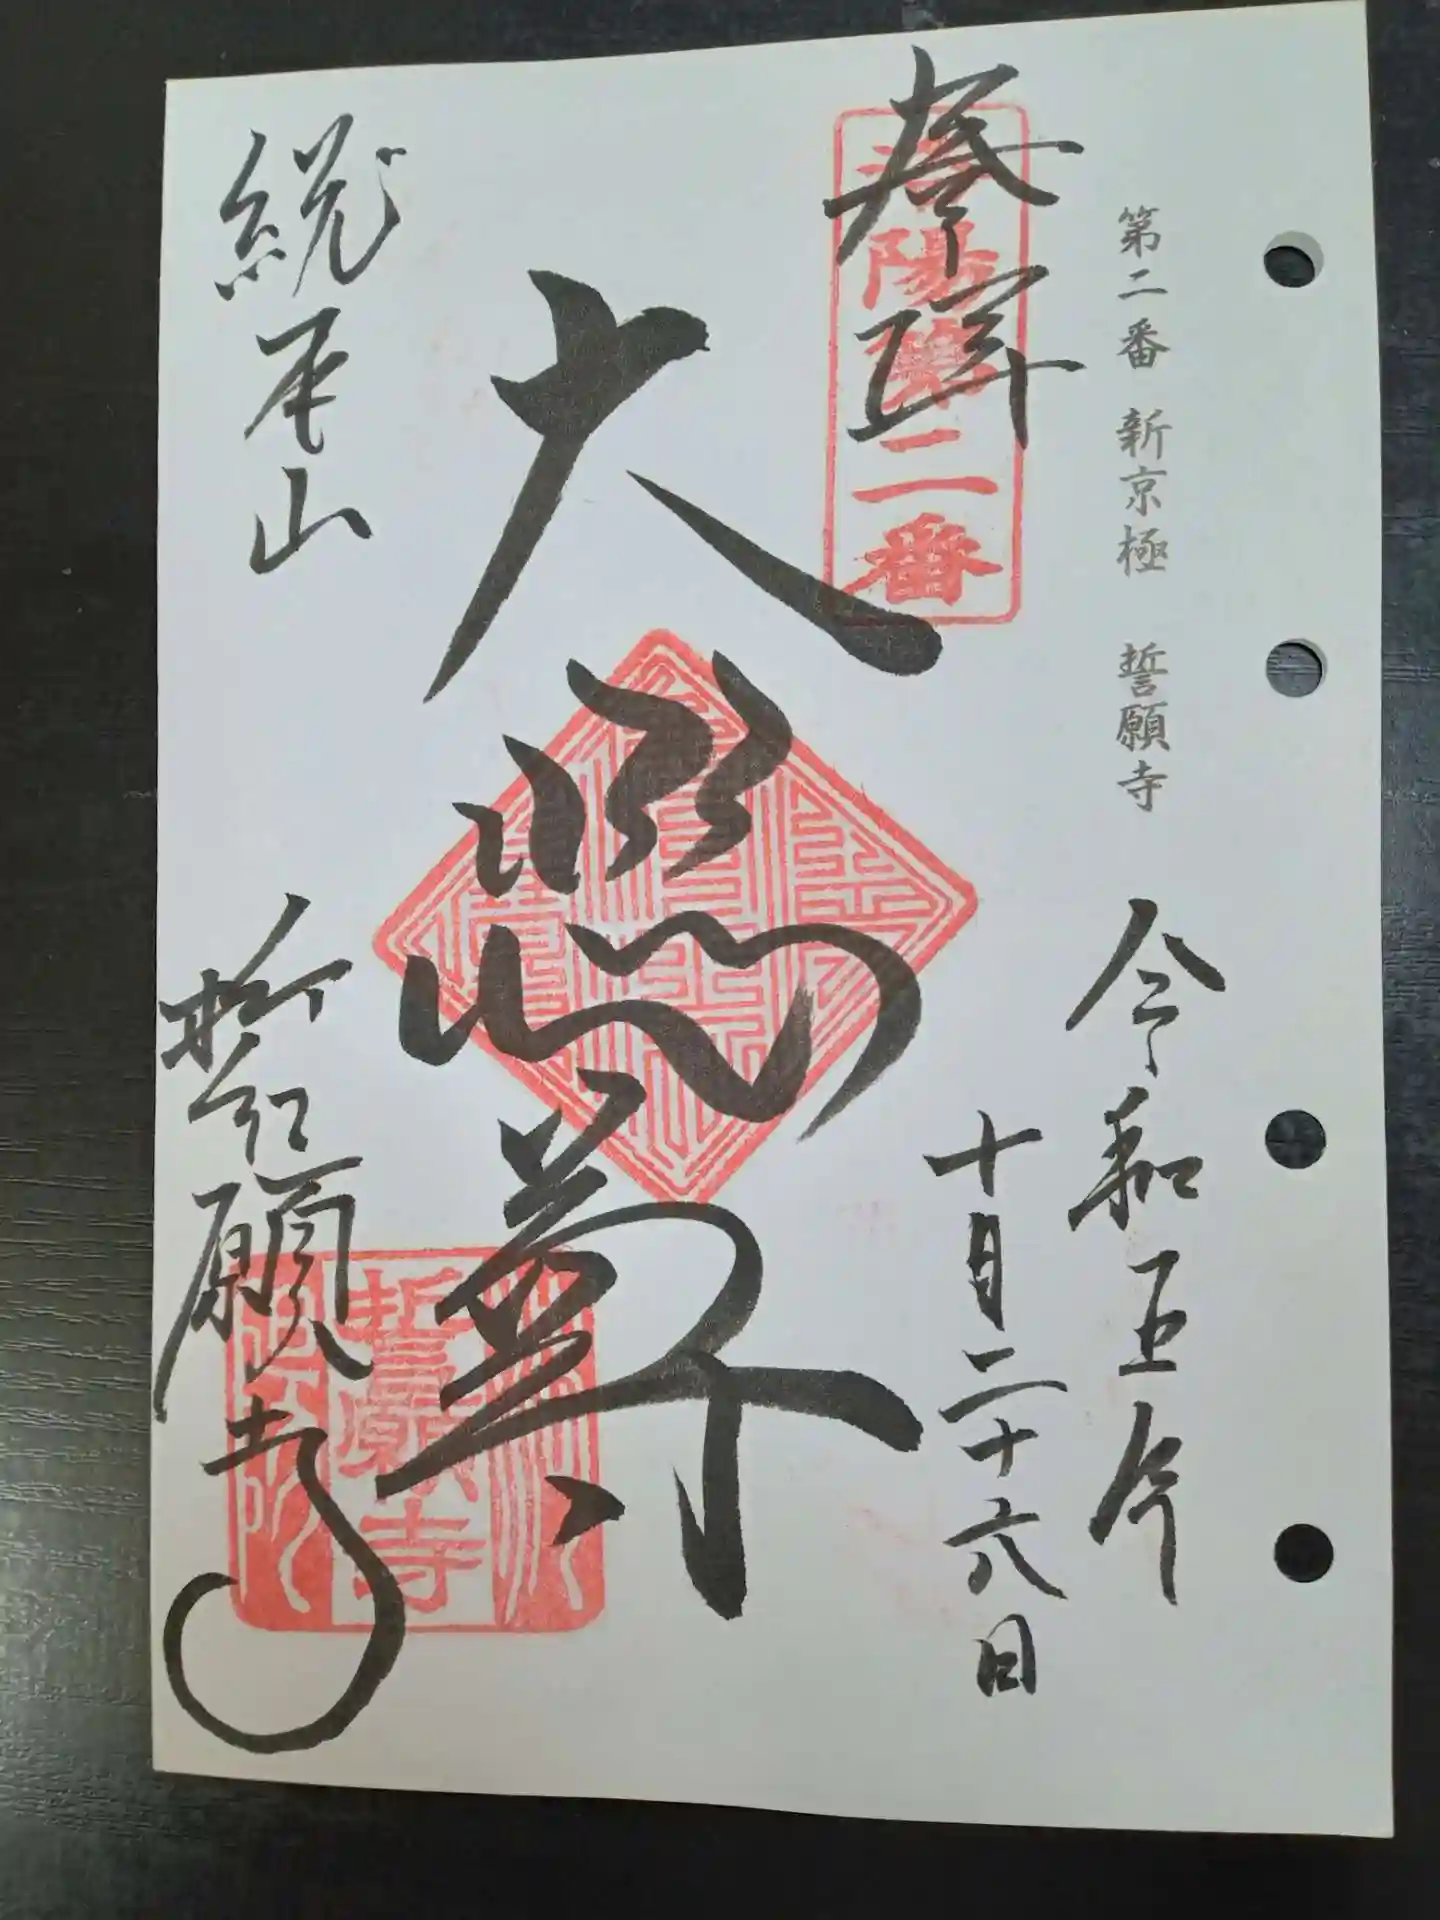 第二番 新京極 誓願寺
令和五年
十月二十六日
奉拝
洛陽第二番
大悲尊
総本山
誓願寺
誓願寺